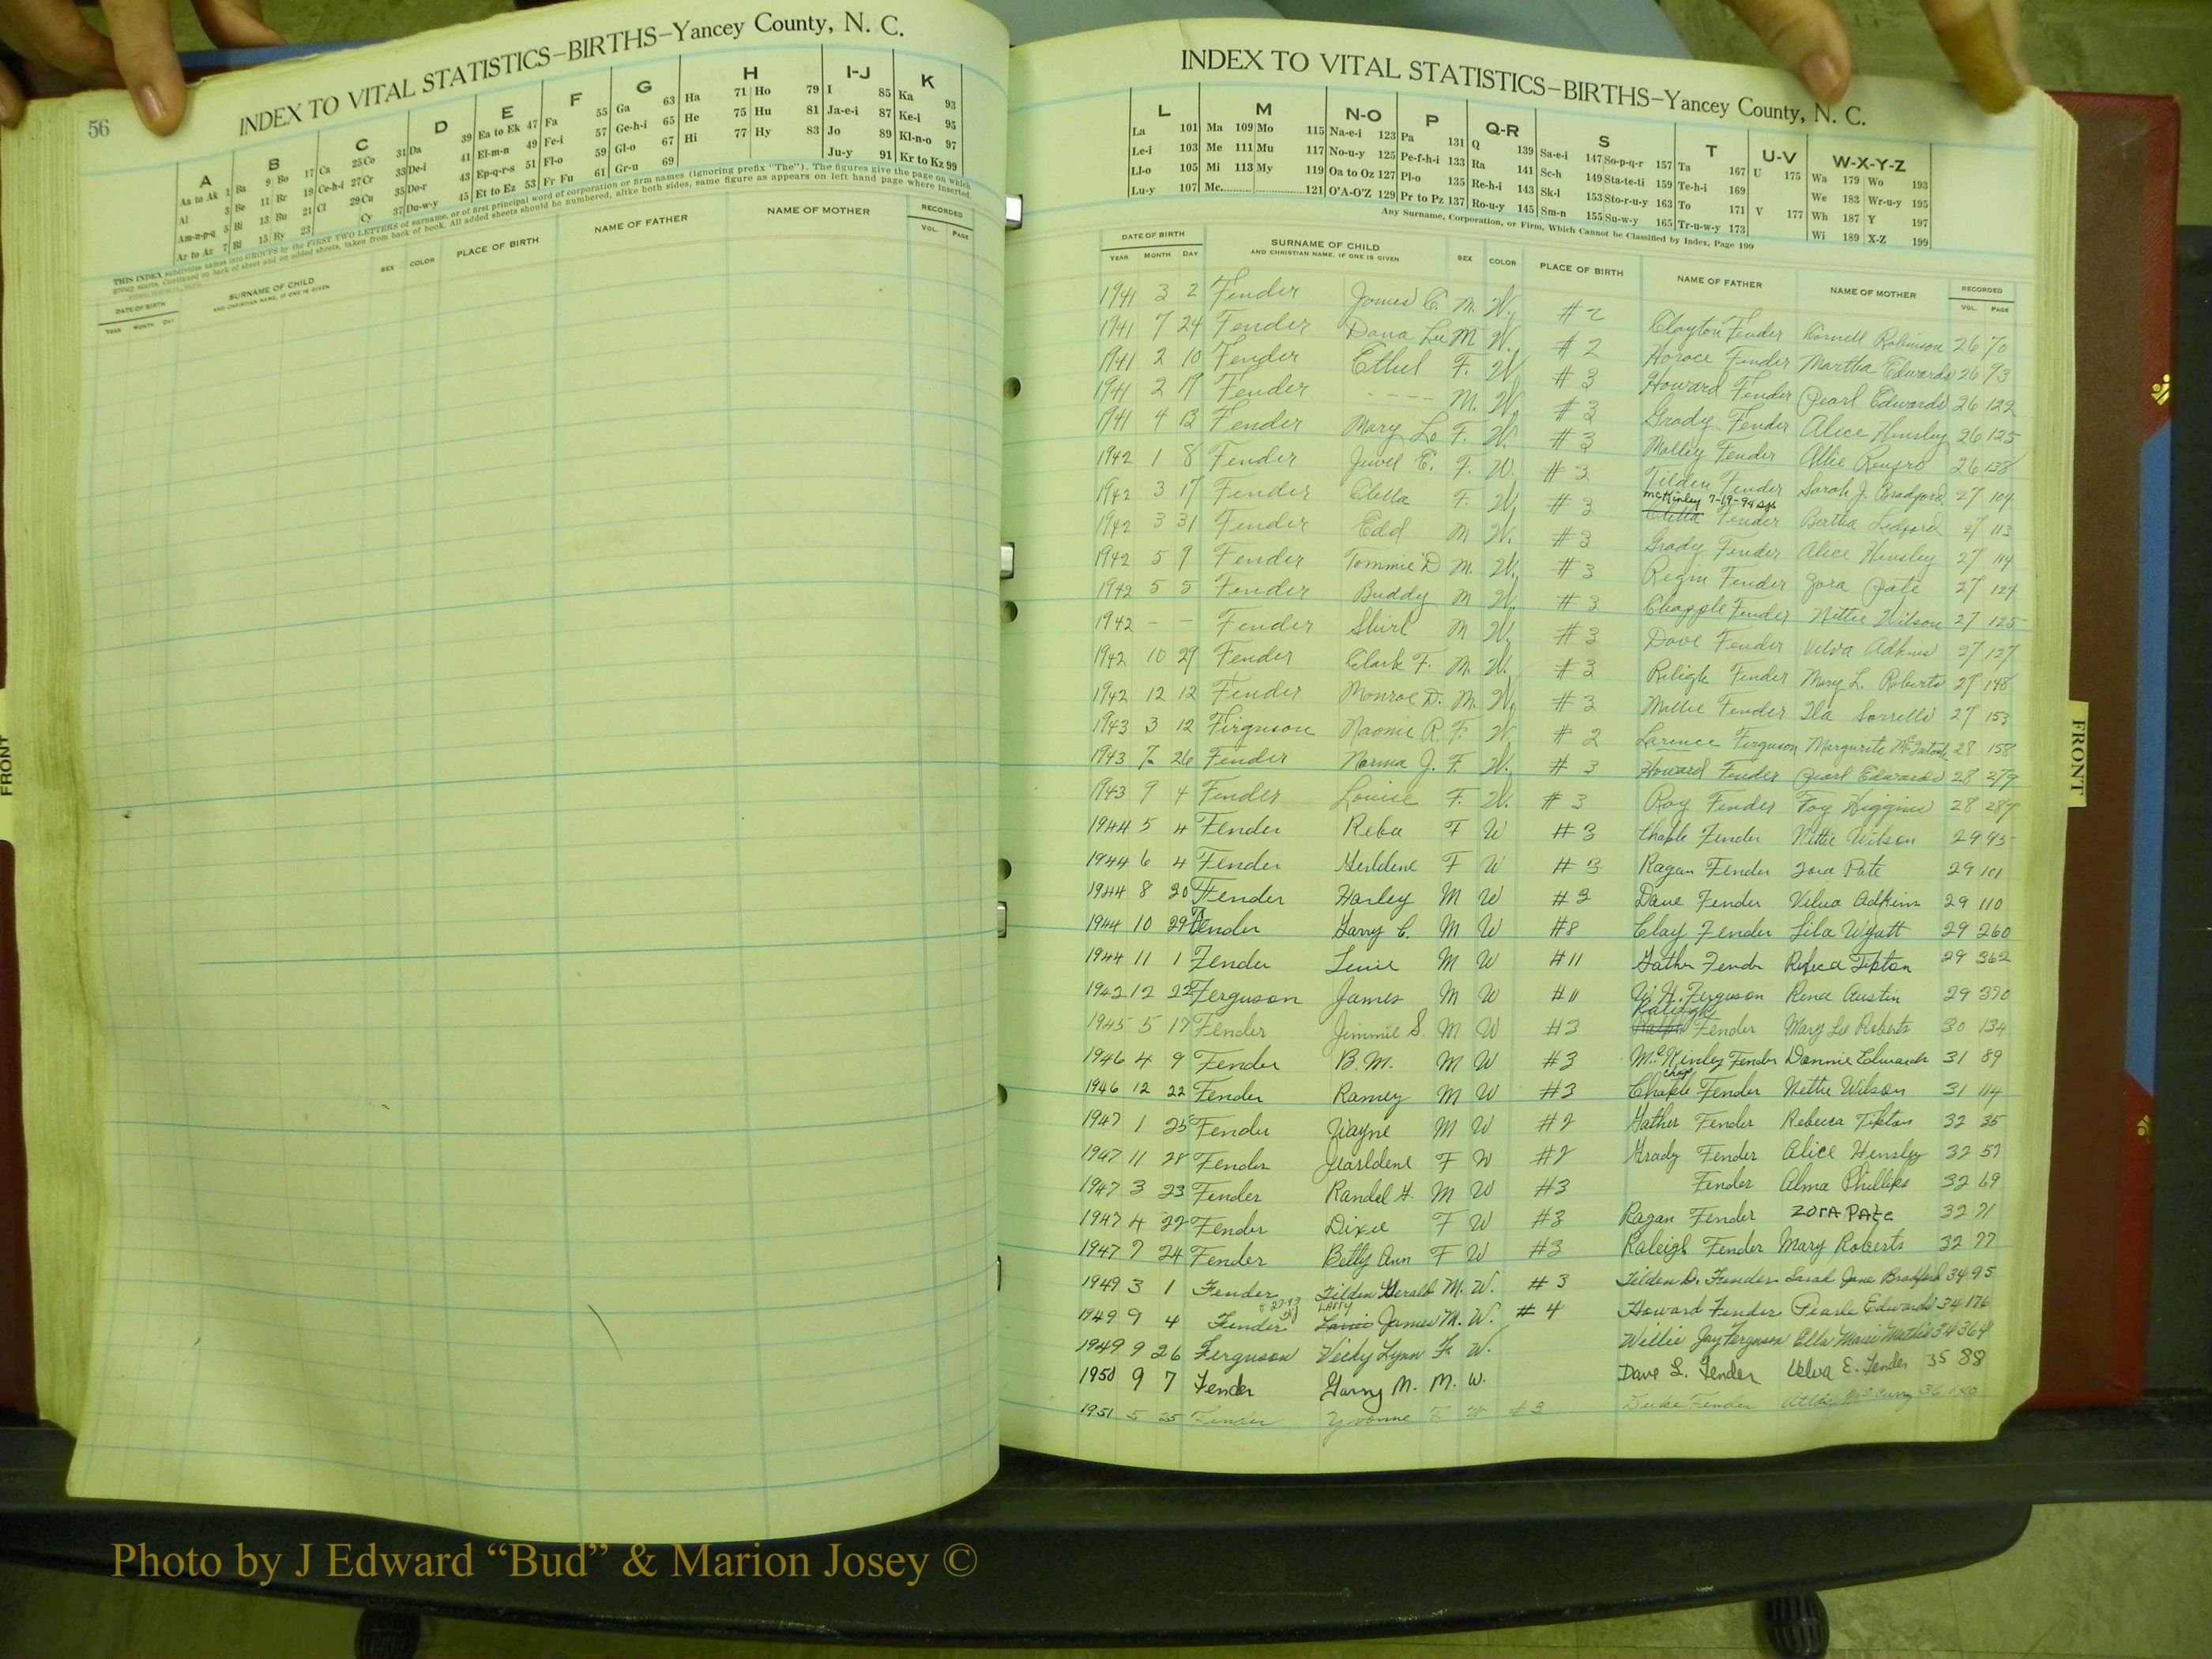 56
INDEX TO VITAL STATISTICS—BIRTHS—Yancey County, N. C.
A B C D E F G H I-J K
Aa to Ak 1 Ba 9 Bo 17 Ca 25 Co 31 Da 39 Ea to Ek 47 Fa 55 Ga 63 Ha 71 Ho 79 I 85 Ka 93
Al 3 Be 11 Br 19 Ce-h-i 27 Cr 33 De-i 41 El-m-n 49 Fe-i 57 Ge-h-i 65 He 75 Hu 81 Ja-e-i 87 Ke-i 95
Am-n-p-q 5 Bi 13 Bu 21 Cl 29 Cu 35 Do-r 43 Ep-q-r-s 51 Fl-o 59 Gl-o 67 Hi 77 Hy 83 Jo 89 Kl-n-o 97
Ar to Az 7 Bl 15 By 23 Cy 37 Du-w-y 45 Et to Ez 53 Fr Fu 61 Gr-u 69 Ju-y 91 Kr to Kz 99
THIS INDEX subdivides names into GROUPS by the FIRST TWO LETTERS of surname, or of first principal word of corporation or firm names (ignoring prefix "The"). The figures give the page on which
group starts. Continued on back of sheet and on added sheets, taken from back of book. All added sheets should be numbered, alike both sides, same figure as appears on left hand page where inserted.
DATE OF BIRTH SURNAME OF CHILD SEX COLOR PLACE OF BIRTH NAME OF FATHER NAME OF MOTHER RECORDED
YEAR MONTH DAY AND CHRISTIAN NAME, IF ONE IS GIVEN VOL. PAGE
INDEX TO VITAL STATISTICS—BIRTHS—Yancey County, N. C.
L M N-O P Q-R S T U-V W-X-Y-Z
La 101 Ma 109 Mo 115 Na-e-i 123 Pa 131 Q 139 Sa-e-i 147 So-p-q-r 157 Ta 167 U 175 Wa 179 Wo 193
Le-i 103 Me 111 Mu 117 No-u-y 125 Pe-f-h-i 133 Ra 141 Sc-h 149 Sta-te-ti 159 Te-h-i 169 We 183 Wr-u-y 195
Ll-o 105 Mi 113 My 119 Oa to Oz 127 Pl-o 135 Re-h-i 143 Sk-l 153 Sto-r-u-y 163 To 171 V 177 Wh 187 Y 197
Lu-y 107 Mc 121 O'A-O'Z 129 Pr to Pz 137 Ro-u-y 145 Sm-n 155 Su-w-y 165 Tr-u-w-y 173 Wi 189 X-Z 199
Any Surname, Corporation, or Firm, Which Cannot be Classified by Index, Page 199
DATE OF BIRTH SURNAME OF CHILD SEX COLOR PLACE OF BIRTH NAME OF FATHER NAME OF MOTHER RECORDED
YEAR MONTH DAY AND CHRISTIAN NAME, IF ONE IS GIVEN VOL. PAGE
1941 3 2 Fender James C. M. W. #2 Clayton Fender Cornell Robinson 26 70
1941 7 24 Fender Dana Lee M W. #2 Horace Fender Martha Edwards 26 73
1941 2 10 Fender Ethel F. W #3 Howard Fender Pearl Edwards 26 122
1941 2 17 Fender ---- M. W. #3 Grady Fender Alice Hensley 26 125
1941 4 13 Fender Mary Lo F. W. #3 Molley Fender Allie Renfro 26 138
1942 1 8 Fender Jewel E. F. W. #3 Tilden Fender Sarah J. Bradford 27 104
McKinley 7-19-94
1942 3 17 Fender Clella F. W. #3 Clella Fender Bertha Ledford 27 113
1942 3 31 Fender Edd M W. #3 Grady Fender Alice Hensley 27 114
1942 5 9 Fender Tommie D M. W. #3 Regin Fender Zora Pate 27 124
1942 5 5 Fender Buddy M W. #3 Chapple Fender Nettie Wilson 27 125
1942 - - Fender Shirl M W. #3 Dave Fender Velva Adkins 27 127
1942 10 29 Fender Clark F. M. W. #3 Roligh Fender Mary L. Roberts 27 148
1942 12 12 Fender Monroe D. M. W. #3 Mollie Fender Ila Sorrells 27 153
1943 3 12 Firguson Naomie R. F. W. #2 Larence Ferguson Margurite McIntosh 28 158
1943 7 26 Fender Norma J. F. W. #3 Howard Fender Pearl Edwards 28 279
1943 9 4 Fender Louise F. W. #3 Roy Fender Foy Higgins 28 287
1944 5 4 Fender Reba F W #3 Chaple Fender Nettie Wilson 29 95
1944 6 4 Fender Gerldene F W #3 Ragan Fender Zora Pate 29 101
1944 8 20 Fender Harley M W #3 Dave Fender Velva Adkins 29 110
1944 10 29 Fender Garry C. M W #8 Clay Fender Lila Wyatt 29 260
1944 11 1 Fender M W #11 Gather Fender Tipton 29 362
1942 12 22 Ferguson James M W #11 W. H. Ferguson Rena Austin 29 390
Raleigh
1945 5 17 Fender Jimmie S. M W #3 Ralph Fender Mary Lee Roberts 30 134
1946 4 9 Fender B. M. M W #3 McKinley Fender Dannie Edwards 31 89
Chap
1946 12 22 Fender Ramey M W #3 Chaple Fender Nettie Wilson 31 114
1947 1 25 Fender Wayne M W #2 Gather Fender Rebecca Tipton 32 35
1947 11 28 Fender Jearldene F W #2 Grady Fender Alice Hensley 32 57
1947 3 23 Fender Randel H. M W #3 Fender Alma Phillips 32 69
1947 4 22 Fender Dixie F W #3 Ragan Fender ZORA PATE 32 71
1947 7 24 Fender Betty Ann F W #3 Raleigh Fender Mary Roberts 32 77
1949 3 1 Fender Tilden Gerald M. W. #3 Tilden D. Fender Sarah Jane Bradford 34 95
LARRY
1949 9 4 Fender James M. W. #4 Howard Fender Pearle Edwards 34 176
1949 9 26 Ferguson Vicky Lynn F. W. Willie Jay Ferguson Ella Maxie Mathis 34 364
1950 9 7 Fender Garry M. M. W. Dave L. Fender Velva E. Fender 35 88
1951 5 25 Fender Yvonne F W #3 Duke Fender McCurry 36
FRONT
FRONT
Photo by J Edward “Bud” & Marion Josey ©